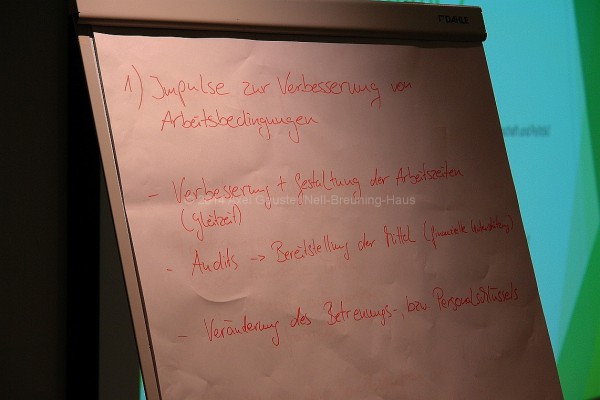 DAHLE
1) Impulse zur Verbesserung von
Arbeitsbedingungen
- Verbesserung + Gestaltung der Arbeitszeiten
(Gleitzeit)
- Audits -> Bereitstellung der Mittel (finanzielle Unterstützung)
- Veränderung des Betreuungs-, bzw. Personalschlüssels
Nell-Breuning-Haus